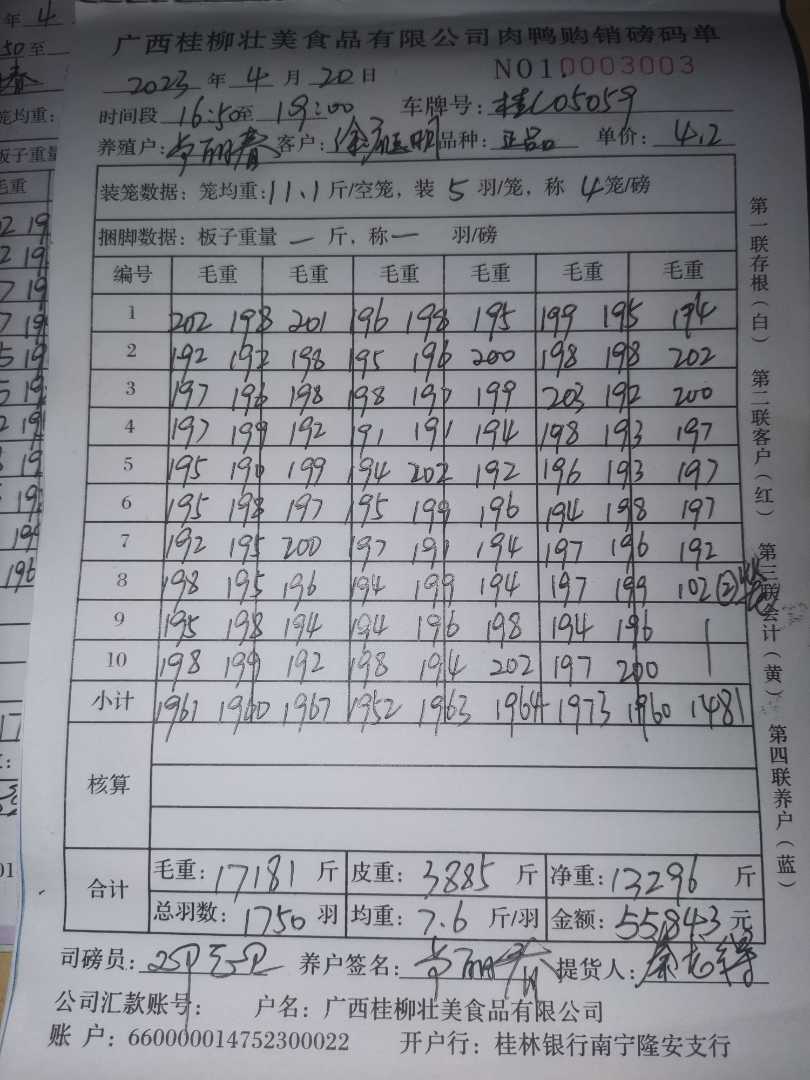 广西桂柳壮美食品有限公司肉鸭购销磅码单
2023 年 4 月 20 日 NO10003003
时间段 16:50 至 19:00 车牌号: 桂L05059
养殖户: 客户: 品种: 正品 单价: 4.2
装笼数据: 笼均重: 11.1 斤/空笼, 装 5 羽/笼, 称 4 笼/磅
捆脚数据: 板子重量 — 斤, 称 — 羽/磅
编号 毛重 毛重 毛重 毛重 毛重 毛重
1 202 198 201 196 198 195 199 195 194
2 192 192 198 195 196 200 198 198 202
3 197 196 198 198 197 199 203 192 200
4 197 199 192 191 191 194 198 193 197
5 195 190 199 194 202 192 196 193 197
6 195 198 197 195 199 196 194 198 197
7 192 195 200 197 191 194 197 196 192
8 198 195 196 194 199 194 197 199 102 ②
9 195 198 194 194 196 198 194 196 |
10 198 199 192 198 194 202 197 200 |
小计 1961 1960 1967 1952 1963 1964 1973 1960 1481
核算
合计 毛重: 17181 斤 皮重: 3885 斤 净重: 13296 斤
总羽数: 1750 羽 均重: 7.6 斤/羽 金额: 55843 元
司磅员: 养户签名: 提货人:
公司汇款账号: 户名: 广西桂柳壮美食品有限公司
账 户: 660000014752300022 开户行: 桂林银行南宁隆安支行
第一联存根(白) 第二联客户(红) 第三联会计(黄) 第四联养户(蓝)